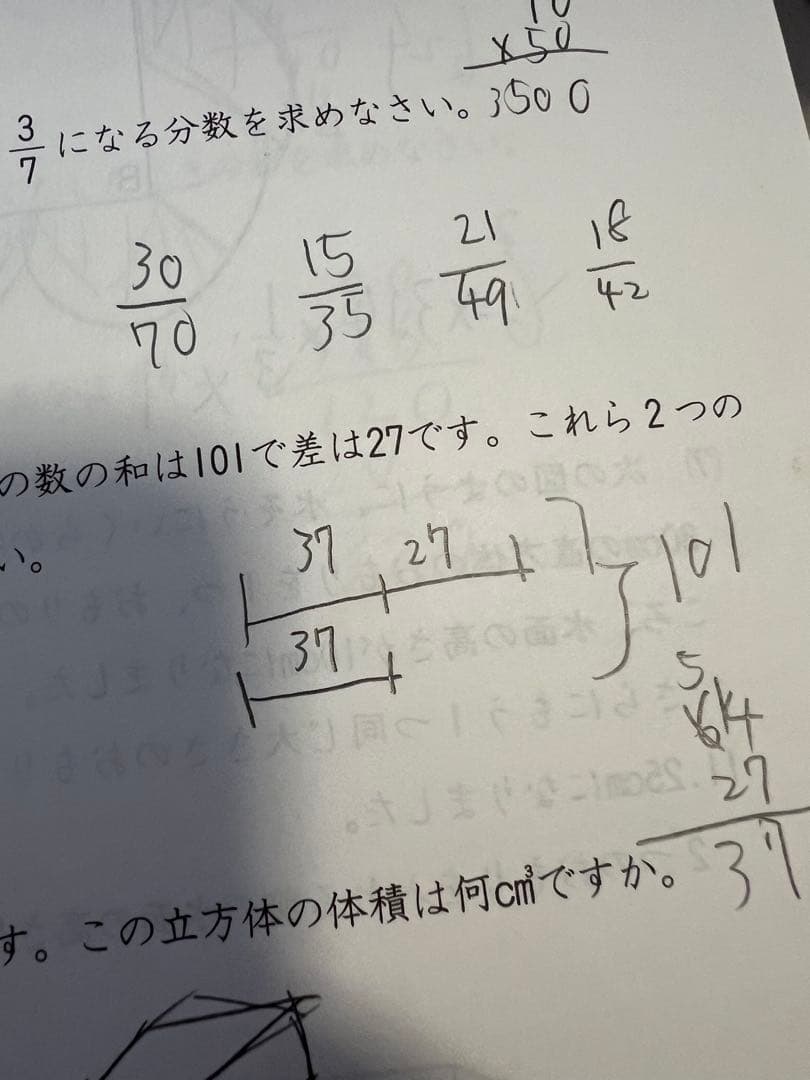 × 50
3500
3/7 になる分数を求めなさい。
30/70 15/35 21/49 18/42
の数の和は101で差は27です。これら2つの
い。
37 27
37
101
5
64
27
37
す。この立方体の体積は何cm³ですか。